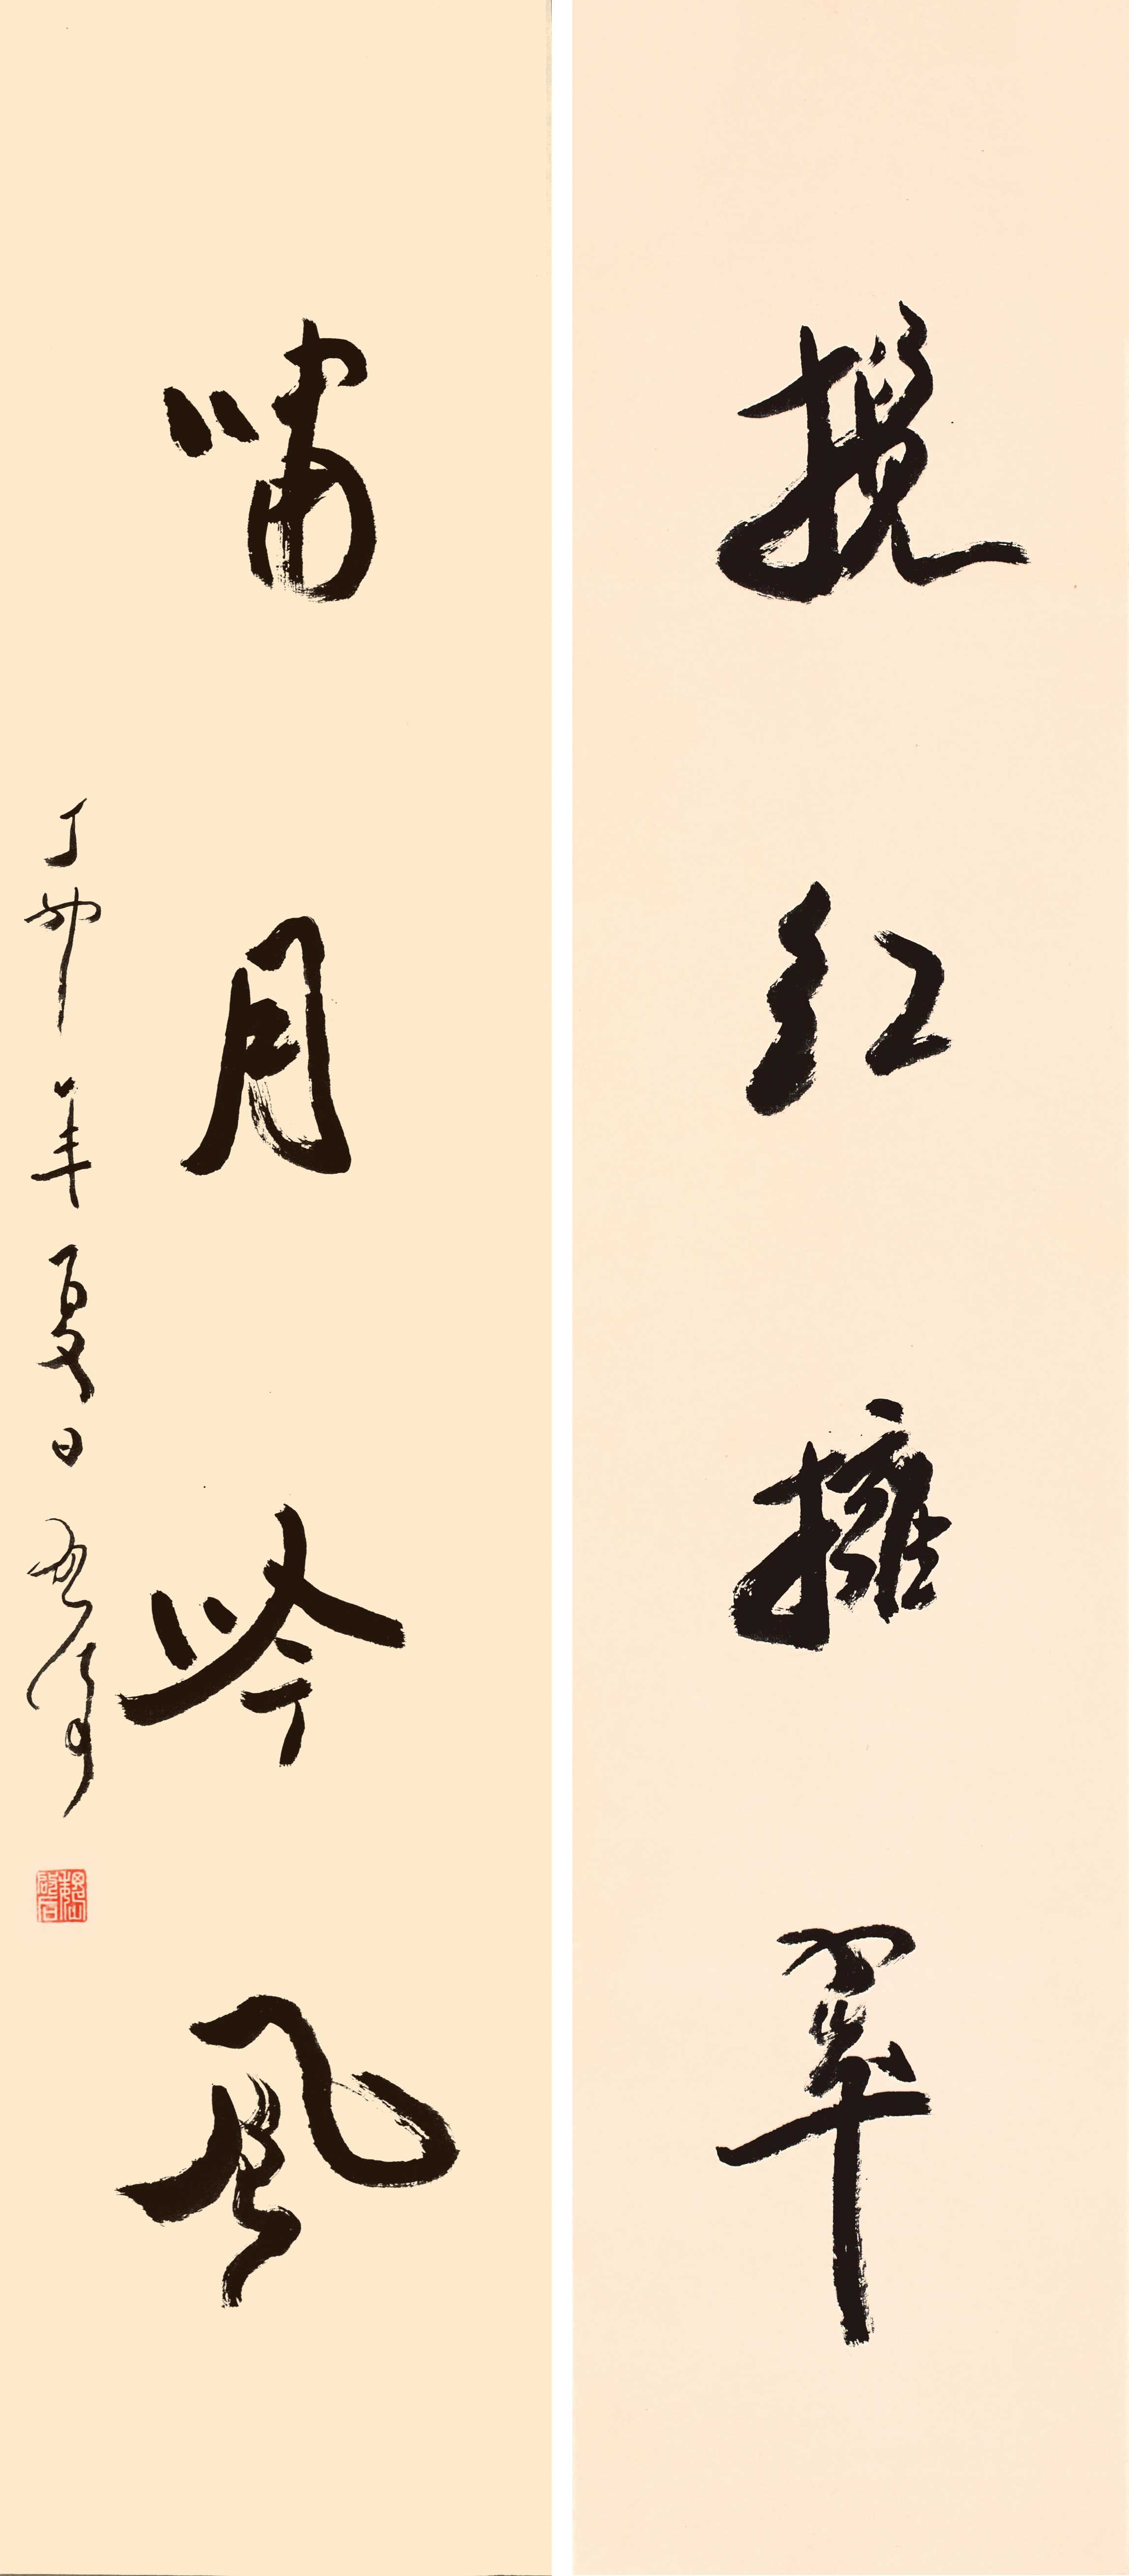 攬紅擁翠
嘯月吟風
丁卯年夏日啓功